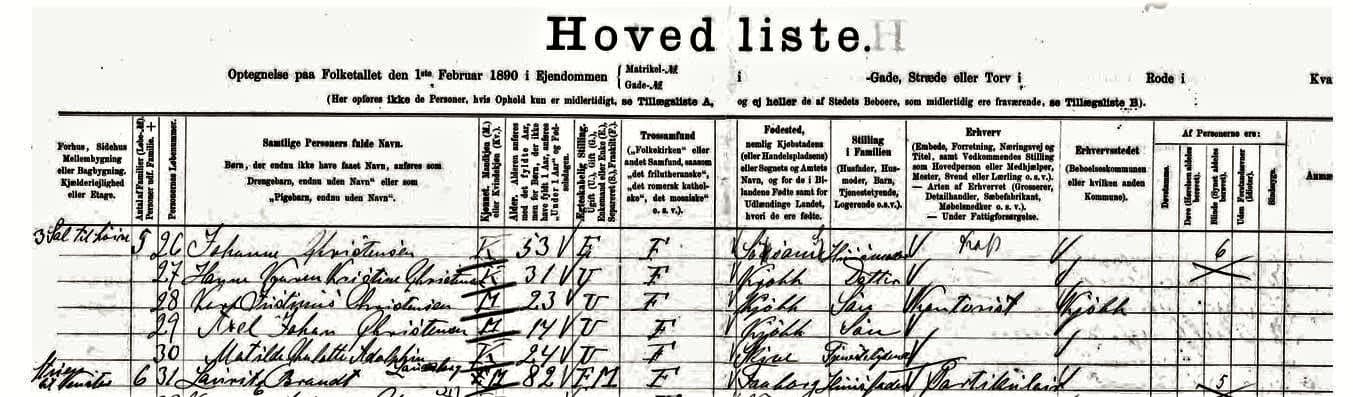 Hoved liste.
Optegnelse paa Folketallet den 1ste Februar 1890 i Ejendommen { Matrikel-№ Gade-№ i -Gade, Stræde eller Torv i Rode i Kva
(Her opføres ikke de Personer, hvis Ophold kun er midlertidigt, se Tillægsliste A, og ej heller de af Stedets Beboere, som midlertidig ere fraværende, se Tillægsliste B).
Forhus, Sidehus Mellembygning eller Bagbygning. Kjælderlejlighed eller Etage.
Antal af Familier (Løbe-№). Personer udf. Familie. +
Personernes Løbenummer.
Samtlige Personers fulde Navn.
Børn, der endnu ikke have faaet Navn, anføres som Drengebarn, endnu uden Navn" eller som „Pigebarn, endnu uden Navn".
Kjønnet. Mandkjøn (M.) eller Kvindekjøn (Kv.).
Alder. Alderen anføres med det fyldte Aar, men for Børn, der ikke have fyldt 1 Aar, anføres „Under 1 Aar" og Fødselsdagen.
Ægteskabelig Stilling. Ugift (U.), Gift (G.), Enkemand eller Enke (E.), Separeret (S.), Fraskilt (F.).
Trossamfund („Folkekirken" eller andet Samfund, saasom „det frilutheranske", „det romersk katholske", det mosaiske" o. s. v.).
Fødested, nemlig Kjøbstadens (eller Handelspladsens) eller Sognets og Amtets Navn, og for de i Bilandene Fødte samt for Udlændinge Landet, hvori de ere fødte.
Stilling i Familien (Husfader, Husmoder, Barn, Tjenestetyende, Logerende o.s.v.).
Erhverv (Embede, Forretning, Næringsvej og Titel, samt Vedkommendes Stilling som Hovedperson eller Medhjælper, Mester, Svend eller Lærling o. s. v.). — Arten af Erhvervet (Grosserer, Detailhandler, Sæbefabrikant, Møbelsnedker o. s. v.). — Under Fattigforsørgelse.
Erhvervsstedet (Beboelseskommunen eller hvilken anden Kommune).
Af Personerne ere:
Døvstumme. Døve (Hørelsen aldeles berøvet). Blinde (Synet aldeles berøvet). Uden Forstandsevner (Idioter). Sindssyge.
3 Sal til 5 26 Johanne Christensen K 53 E F Husmoder 6
27 Karen Kristine Christensen K 31 U F Kjøbh Datter
28 Christensen M 23 U F Kjøbh Søn Kontorist Kjøbh
29 Axel Johan Christensen M 14 U F Kjøbh Søn
30 Matilde Charlotte K 24 U F Tjenestetyende
6 31 Laurits Brandt M 82 F Faaborg Husfader Partikulier 5